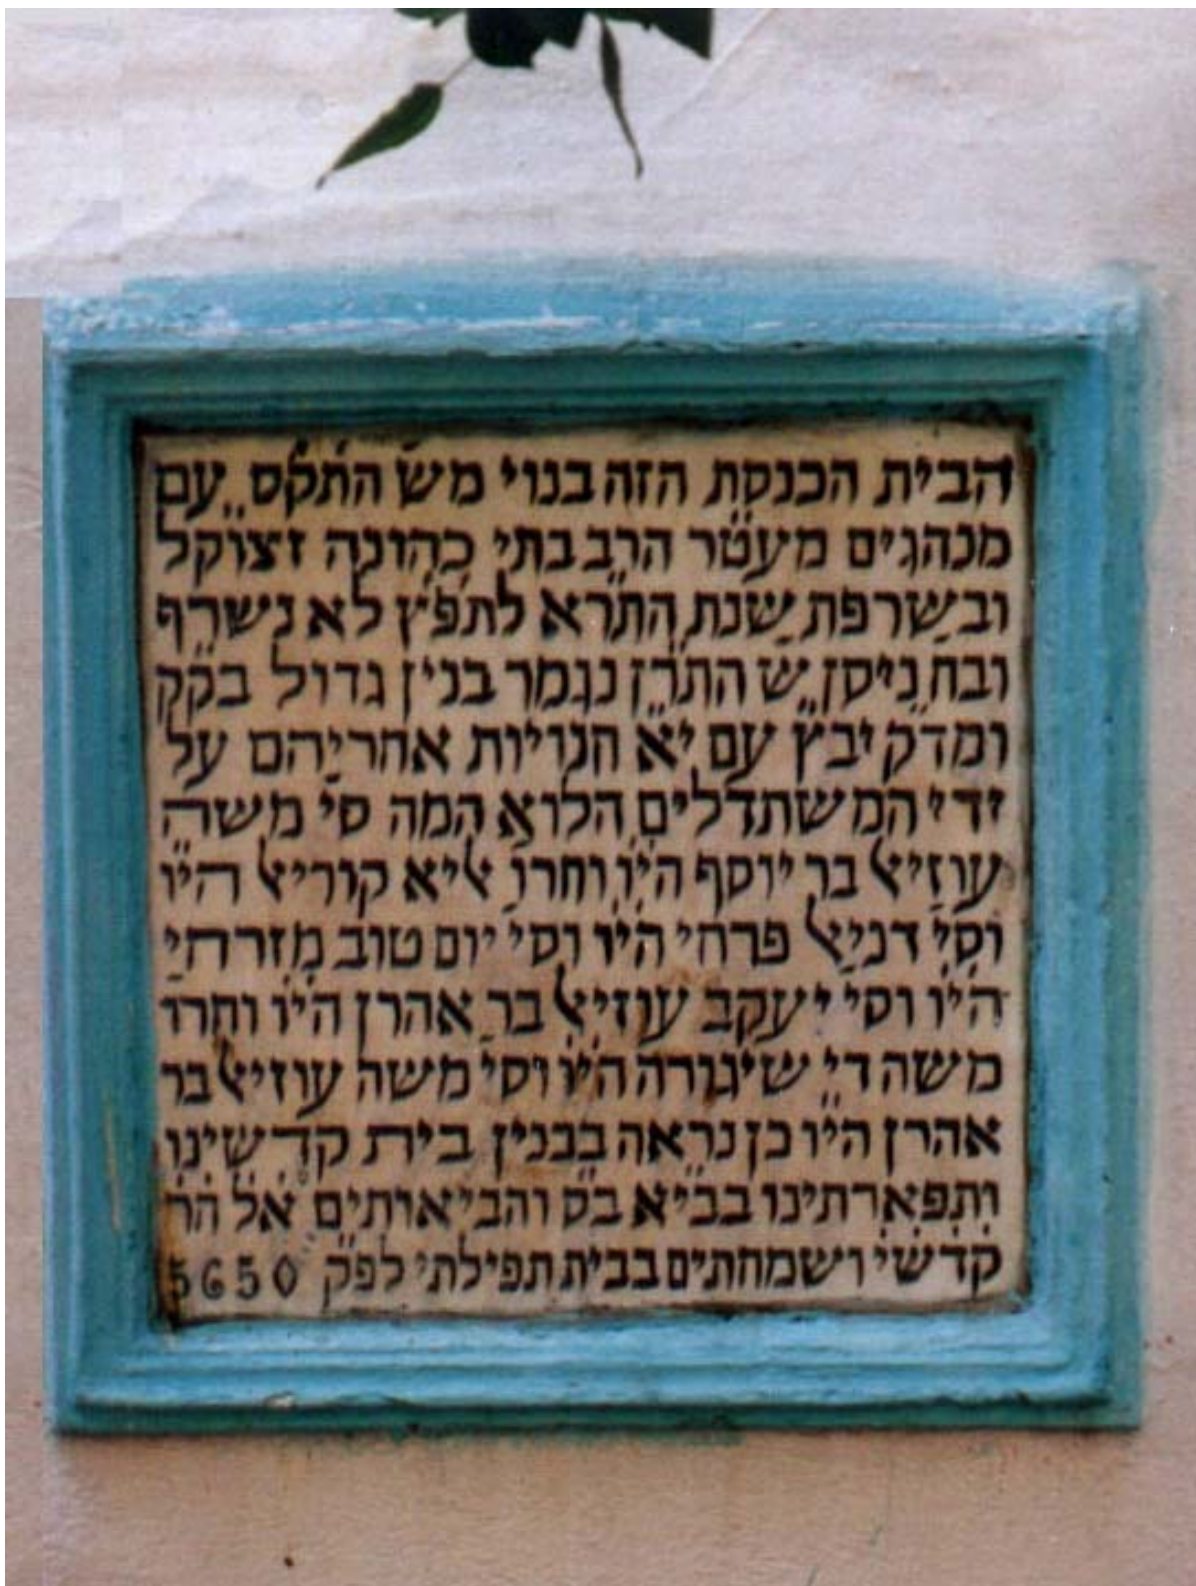 הבית הכנסת הזה בנוי מש התקס עם
מנהגים מעטר הרב בתי כהונה זצוקל
ובשרפת שנת התרא לתפץ לא נשרף
ובח ניסן ש התרן נגמר בנין גדול בקק
ומדק יבץ עם יא חנויות אחריהם על
ידי המשתדלים הלוא המה סי משה
עוזיאל בר יוסף היו וחרו אליא קוריאל היו
וסי דניאל פרחי היו וסי יום טוב מזרחי
היו וסי יעקב עוזיאל בר אהרן היו וחרו
משה די שיגורה היו וסי משה עוזיאל בר
אהרן היו כן נראה בבנין בית קדשינו
ותפארתינו בביא בס והביאותים אל הר
קדשי ושמחתים בבית תפילתי לפק 5650